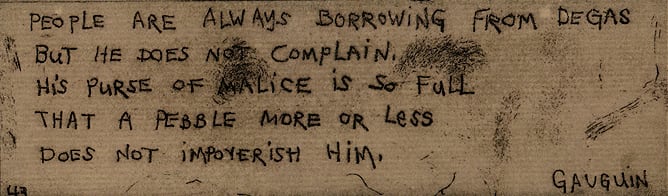 PEOPLE ARE ALWAYS BORROWING FROM DEGAS
BUT HE DOES NOT COMPLAIN.
HIS PURSE OF MALICE IS SO FULL
THAT A PEBBLE MORE OR LESS
DOES NOT IMPOVERISH HIM.
GAUGUIN
43